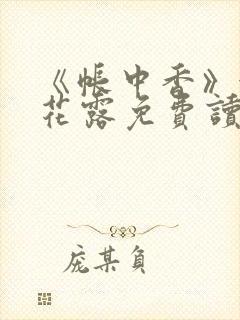 《帳中香》
花露免費讀
庞某负